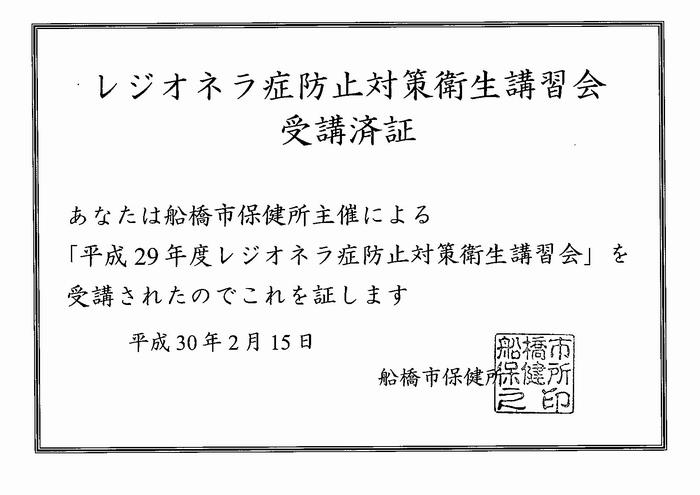 レジオネラ症防止対策衛生講習会
受講済証
あなたは船橋市保健所主催による
「平成29年度レジオネラ症防止対策衛生講習会」を
受講されたのでこれを証します
平成30年2月15日
船橋市保健所
船橋市
保健所
之印